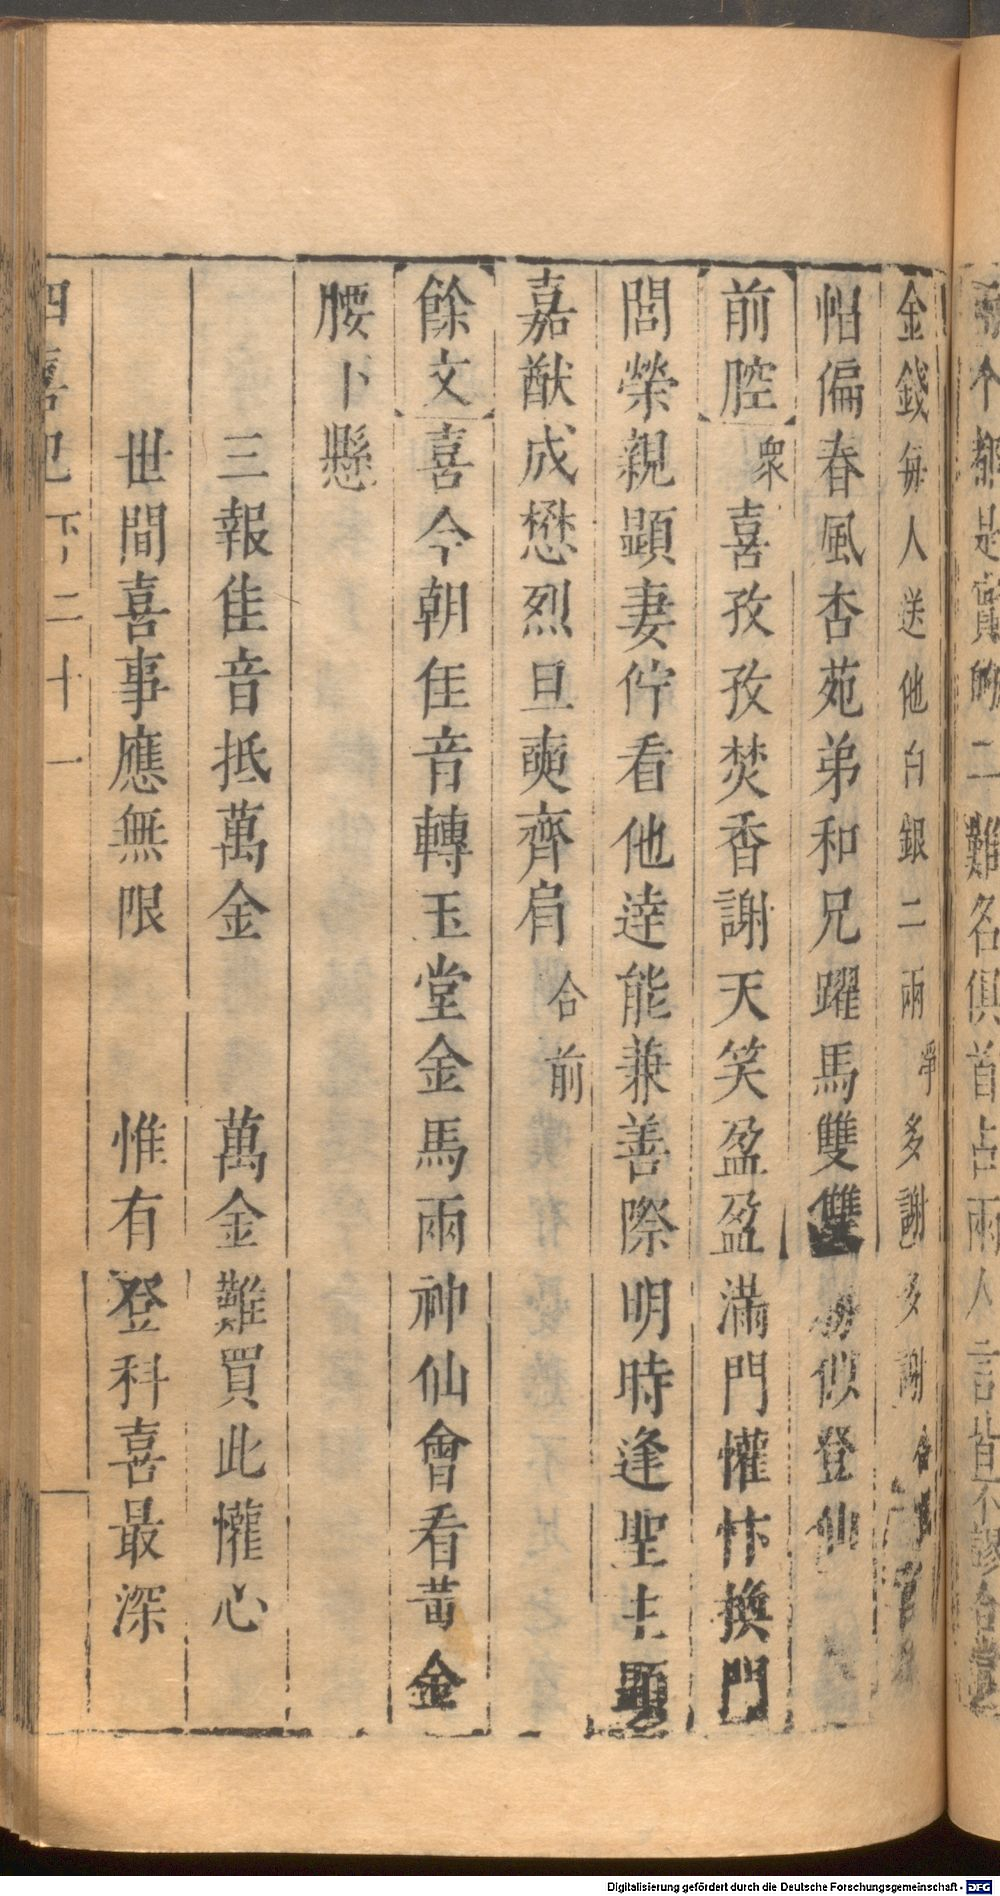 个都是賞的二難名俱首占兩人言皆不謬合當
金錢每人送他白銀二兩淨多謝多謝合
帽偏春風杏苑弟和兄躍馬雙雙似登仙
前腔衆喜孜孜焚香謝天笑盈盈滿門懽忭換門
閭榮親顯妻佇看他達能兼善際明時逢聖主顯
嘉猷成懋烈旦奭齊肩合前
餘文喜今朝佳音轉玉堂金馬兩神仙會看黃金
腰下懸
三報佳音抵萬金 萬金難買此懽心
世間喜事應無限 惟有登科喜最深
四喜記下二十一
Digitalisierung gefördert durch die Deutsche Forschungsgemeinschaft - DFG